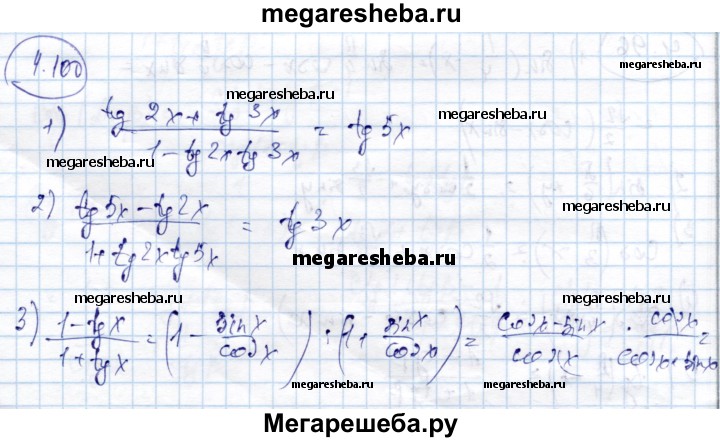 megaresheba.ru
4.100
megaresheba.ru megaresheba.ru
1) (tg 2x + tg 3x)/(1 - tg 2x tg 3x) = tg 5x
megaresheba.ru megaresheba.ru
2) (tg 5x - tg 2x)/(1 + tg 2x tg 5x) = tg 3x
megaresheba.ru
megaresheba.ru
megaresheba.ru megaresheba.ru
3) (1 - tg x)/(1 + tg x) = (1 - sin x/cos x) : (1 + sin x/cos x) = (cos x - sin x)/cos x · cos x/(cos x + sin x) =
megaresheba.ru megaresheba.ru
Мегарешеба.ру